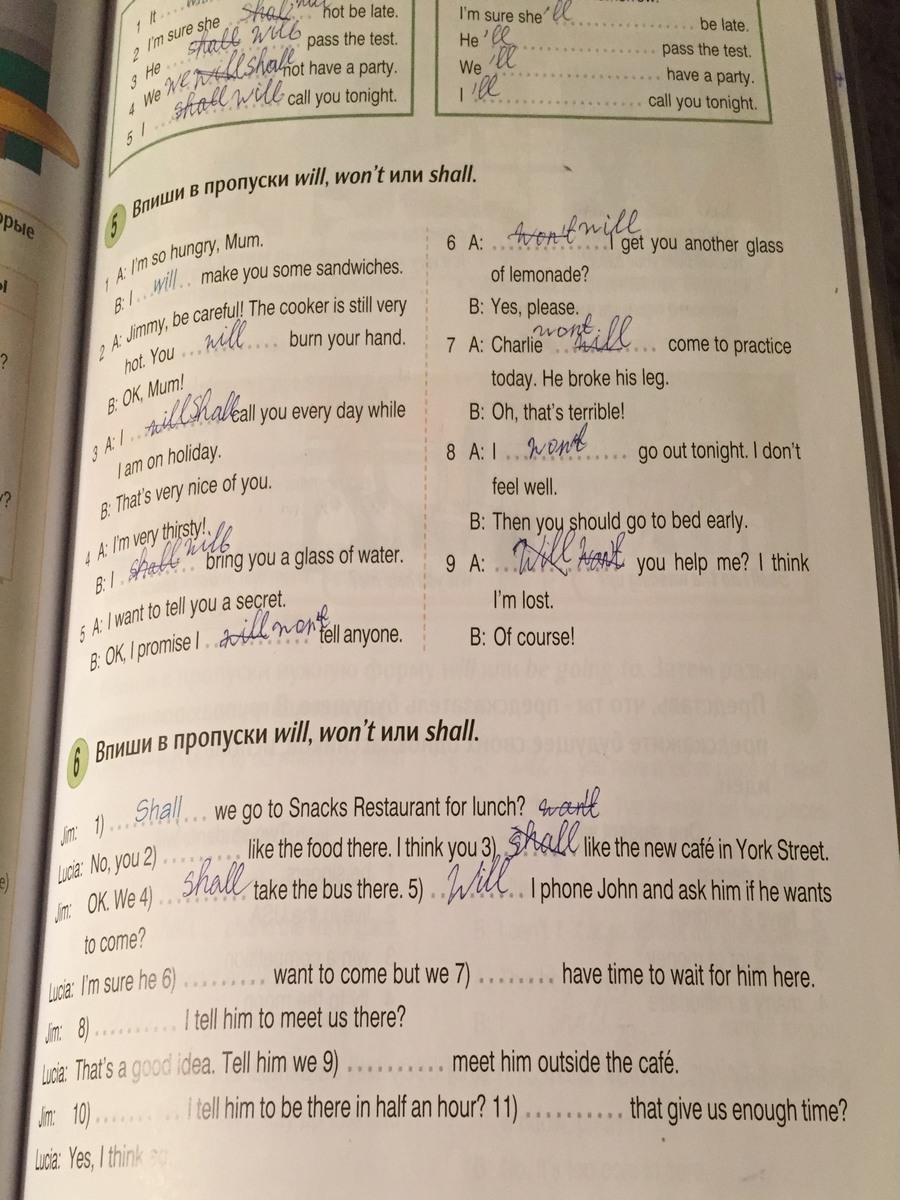 1 It
2 I'm sure she shall not be late.
3 He shall will pass the test.
4 We we will shall not have a party.
5 I shall will call you tonight.
I'm sure she 'll be late.
He 'll pass the test.
We 'll have a party.
I 'll call you tonight.
5 Впиши в пропуски will, won't или shall.
1 A: I'm so hungry, Mum.
B: I will make you some sandwiches.
2 A: Jimmy, be careful! The cooker is still very
hot. You will burn your hand.
B: OK, Mum!
3 A: I will Shall call you every day while
I am on holiday.
B: That's very nice of you.
4 A: I'm very thirsty!
B: I shall will bring you a glass of water.
5 A: I want to tell you a secret.
B: OK, I promise I will wont tell anyone.
6 A: won't will I get you another glass
of lemonade?
B: Yes, please.
7 A: Charlie wont will come to practice
today. He broke his leg.
B: Oh, that's terrible!
8 A: I wont go out tonight. I don't
feel well.
B: Then you should go to bed early.
9 A: Will wont you help me? I think
I'm lost.
B: Of course!
6 Впиши в пропуски will, won't или shall.
Jim: 1) Shall we go to Snacks Restaurant for lunch? wont
Lucia: No, you 2) like the food there. I think you 3) shall like the new café in York Street.
Jim: OK. We 4) shall take the bus there. 5) Will I phone John and ask him if he wants
to come?
Lucia: I'm sure he 6) want to come but we 7) have time to wait for him here.
Jim: 8) I tell him to meet us there?
Lucia: That's a good idea. Tell him we 9) meet him outside the café.
Jim: 10) I tell him to be there in half an hour? 11) that give us enough time?
Lucia: Yes, I think so.